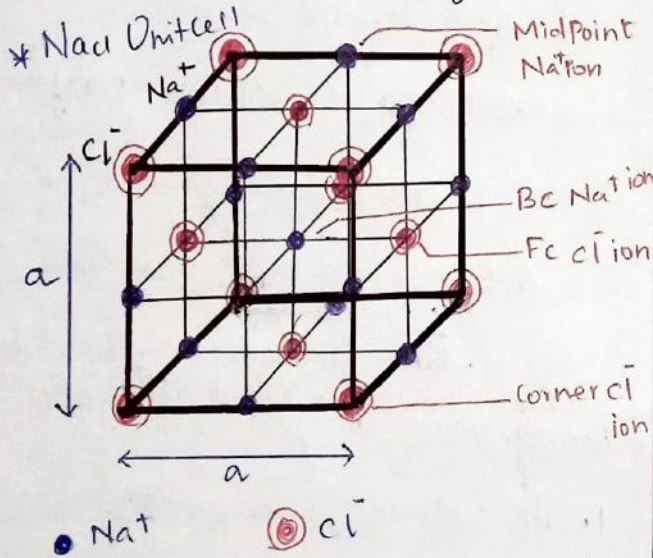 * NaCl Unitcell
MidPoint
Na⁺ion
Na⁺
Cl⁻
BC Na⁺ ion
FC Cl⁻ ion
a
Corner Cl⁻
ion
a
Na⁺
Cl⁻